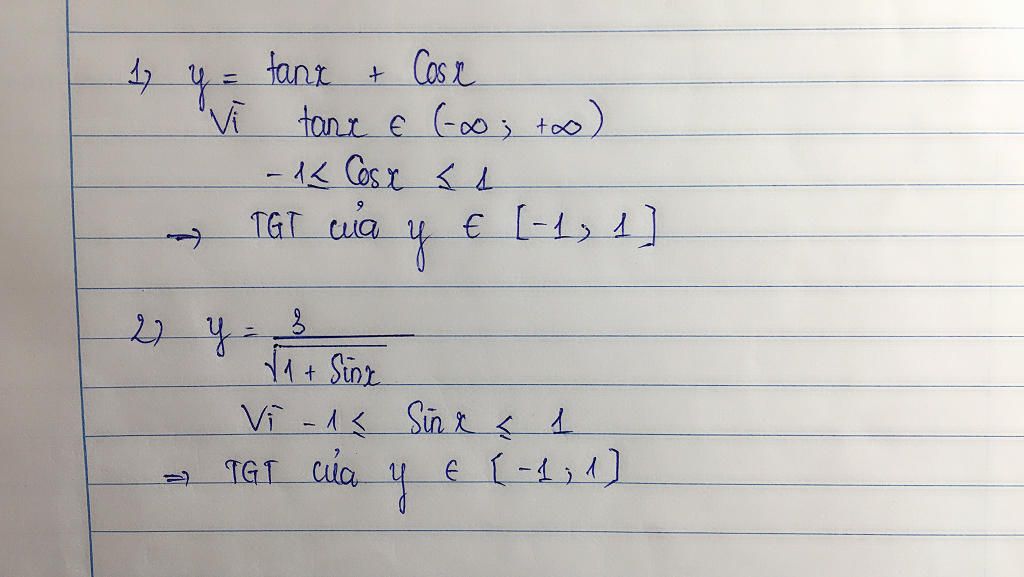 1) y = tanx + Cosx
Vì tanx ∈ (-∞; +∞)
-1 ≤ Cosx ≤ 1
→ TGT của y ∈ [-1; 1]
2) y = 3 / √(1 + Sinx)
Vì -1 ≤ Sinx ≤ 1
⇒ TGT của y ∈ [-1; 1]